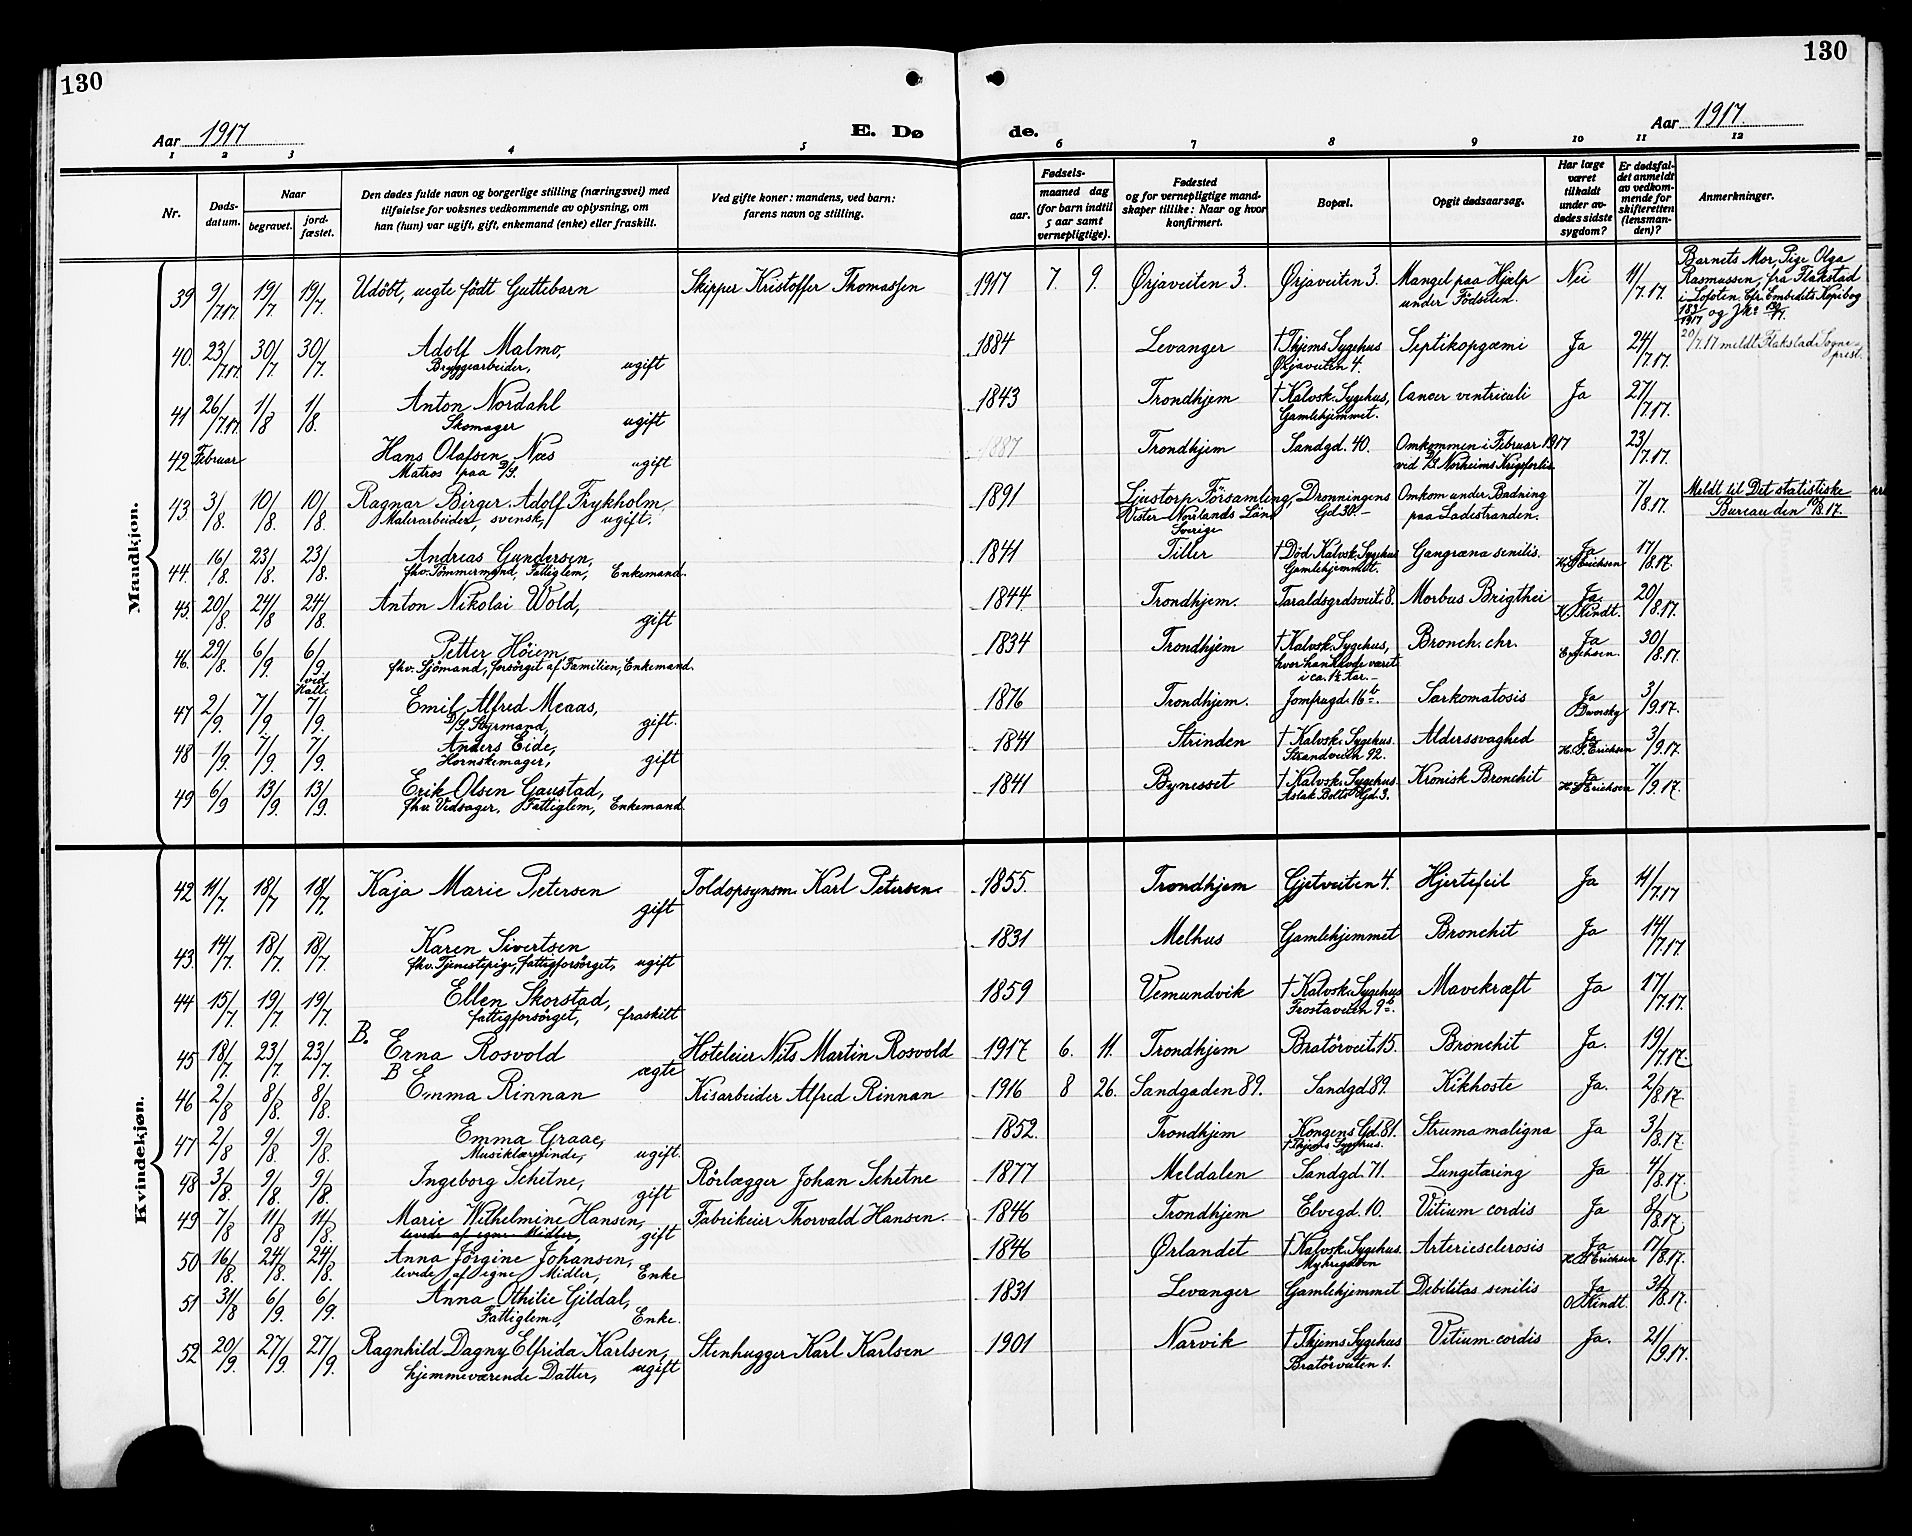 130
130
Aar 1917
E. Dø
de.
Aar 1917.
1 2 3 4 5 6 7 8 9 10 11 12
Nr.
Døds-
datum.
Naar
begravet.
jord-
fæstet.
Den dødes fulde navn og borgerlige stilling (næringsvei) med
tilføielse for voksnes vedkommende av oplysning, om
han (hun) var ugift, gift, enkemand (enke) eller fraskilt.
Ved gifte koner: mandens, ved barn:
farens navn og stilling.
Fødsels-
aar.
maaned dag
(for barn indtil
5 aar samt
vernepligtige).
Fødested
og for vernepligtige mand-
skaper tillike: Naar og hvor
konfirmert.
Bopæl.
Opgit dødsaarsag.
Har læge
været
tilkaldt
under av-
dødes sidste
sygdom?
Er dødsfal-
det anmeldt
av vedkom-
mende for
skifteretten
(lensman-
den)?
Anmerkninger.
Mandkjøn.
39 9/7.17. 19/7 19/7. Udöbt, uegte födt Guttebarn Skipper Kristoffer Thomassen 1917 7. 9. Ørjaveiten 3. Ørjaveiten 3. Mangel paa Hjælp Nei 11/7.17.
under Födselen.
Barnets Mor, Pige Olga
Rasmussen, fra Flakstad
i Lofoten. Cfr. Embedets Kopibog
183/1917 og
20/7.17 meldt Flakstad Sogne-
prest.
40. 23/7.17. 30/7. 30/7. Adolf Malmo, 1884 Levanger † Thjems Sygehus Septikopyæmi Ja 24/7.17.
Bryggearbeider, ugift Ørjaveiten 4.
41 26/7.17. 1/8 1/8. Anton Nordahl 1843 Trondhjem † Kalvsk. Sygehus, Cancer ventriculi Ja 27/7.17.
Skomager ugift Gamlehjemmet.
42 Februar Hans Olafsen Næs 1887 Trondhjem Sandgd. 40. Omkommen i Februar 1917 23/7.17.
Matros paa D/S. ugift ved D/S Norheims Krigsforlis
43 3/8. 10/8. 10/8. Ragnar Birger Adolf Frykholm, 1891 Ljustorp Församling, Dronningens Omkom under Badning 7/8.17. Meldt til Det statistiske
Malerarbeider, svensk, ugift. Vester Norrlands Län Gd 30. paa Ladestranden. Bureau den 10/8.17.
Sverige
44. 16/8. 23/8. 23/8. Andreas Gundersen, 1841 Tiller † Död Kalvsk. Sygehus Gangræna senilis. Ja 17/8.17.
fhv. Tömmermand, Fattiglem, Enkemand. Gamlehjemmet. H. S. Erichsen
45. 20/8 24/8 24/8. Anton Nikolai Wold, 1844. Trondhjem. Taraldsgrdsveit. 8. Morbus Brigthei Ja. 20/8.17.
gift Kindt.
46. 29/8. 6/9. 6/9 Petter Höiem, 1834 Trondhjem † Kalvsk. Sygehus, Bronch. chr. Ja 30/8.17.
ved
Kall.
fhv. Sjömand, forsörget af Familien, Enkemand. hvor han havde været Erichsen.
i ca. 1½ Aar.
47 2/9. 7/9. 7/9. Emil Alfred Meaas, 1876 Trondhjem. Jomfrugd. 16 b. Sarkomatosis Ja 3/9.17.
D/S. Styrmand, gift.
48 1/9. 7/9. 7/9. Anders Eide, 1841 Strinden † Kalvsk. Sygehus. Alderssvaghed Ja 3/9.17.
Hornskemager, gift Strandveien 92. H. S. Erichsen
49 6/9 13/9. 13/9. Erik Olsen Gaustad, 1841 Bynesset † i Kalvsk. Sygehus. Kronisk Bronchit Ja 7/9.17.
fhv. Vedsager, Fattiglem, Enkemand Aslak Bolts Gd. 3. H. S. Erichsen
Kvindekjøn.
42 11/7. 18/7 18/7. Kaja Marie Petersen Toldopsynsm. Karl Petersen 1855. Trondhjem Gjetveiten 4. Hjertefeil Ja 11/7.17
gift
43. 14/7. 18/7. 18/7. Karen Sivertsen 1831 Melhus Gamlehjemmet Bronchit Ja 14/7.17.
fhv. Tjenestepige, fattigforsörget, ugift
44 15/7. 19/7. 19/7. Ellen Skorstad, 1859 Vemundvik † Kalvsk. Sygehus Mavekræft Ja 17/7.17.
fattigforsörget, fraskilt Frostaveiten 9 b.
45 18/7. 23/7. 23/7. B. Erna Rosvold Hoteleier Nils Martin Rosvold 1917 6. 11. Trondhjem Bratörveit. 15. Bronchit Ja. 19/7.17.
ægte
46 2/8 8/8. 8/8. B Emma Rinnan Kisarbeider Alfred Rinnan 1916 8 26. Sandgaden 89. Sandgd. 89 Kikhoste Ja. 2/8.17.
47 2/8 9/8. 9/8. Emma Graae, 1852. Trondhjem Kongens Gd. 81. Struma maligna Ja 3/8.17.
Musiklærerinde, ugift. † Thjems Sygehus.
48 3/8. 9/8. 9/8. Ingeborg Schetne, Rörlægger Johan Schetne 1877 Meldalen Sandgd. 71. Lungetæring Ja 4/8.17.
gift
49 7/8 11/8 11/8. Marie Wilhelmine Hansen, Fabrikeier Thorvald Hansen. 1846 Trondhjem Elvegd. 10. Vitium cordis Ja 8/8.17.
levede af egne Midler, gift
50 16/8. 24/8. 24/8. Anna Jörgine Johansen, 1846 Ørlandet † Kalvsk. Sygehus. Arteriesclerosis Ja 17/8.17.
levede af egne Midler, Enke H. S. Erichsen
51 31/8 6/9 6/9. Anna Othilie Gildal, 1831 Levanger Gamlehjemmet Debilitas senilis Ja 31/8.17.
Fattiglem, Enke. Kindt.
52 20/9. 27/9. 27/9. Ragnhild Dagny Elfrida Karlsen, Stenhugger Karl Karlsen 1901 Narvik † Thjems Sygehus Vitium cordis Ja. 21/9.17.
hjemmeværende Datter, ugift Bratörveiten 1.